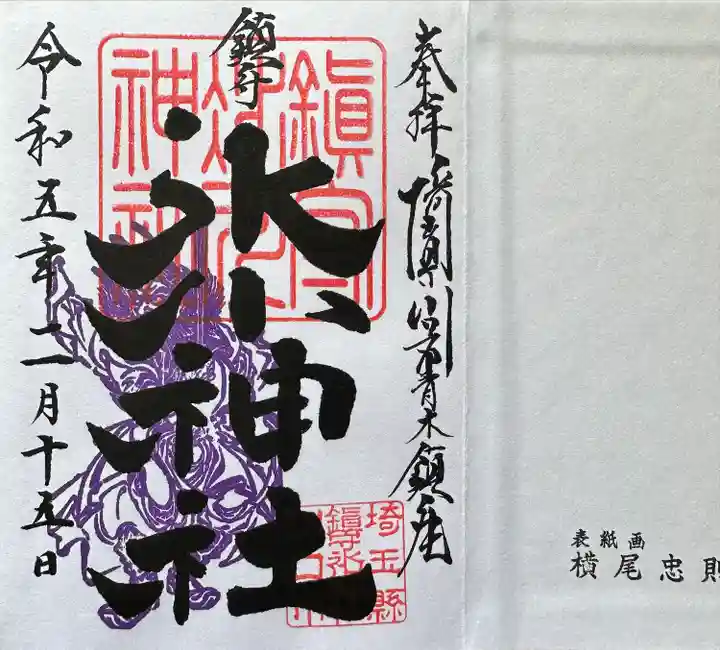 奉拝 埼玉県川口市青木鎮座
鎮守
氷川神社
令和五年二月十五日
鎮守
神社
埼玉縣
鎮守氷
表紙画
横尾忠則